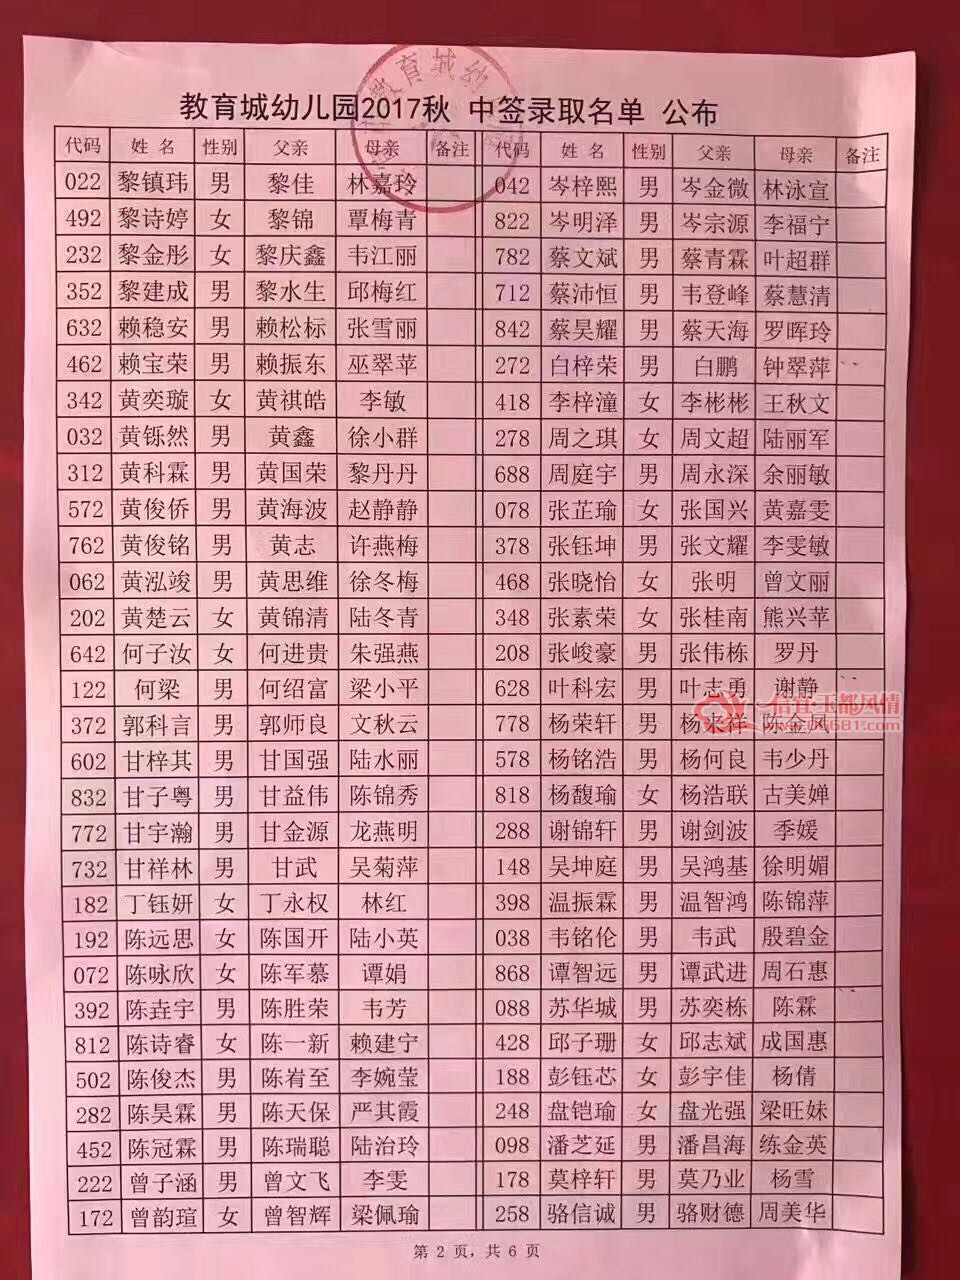 教育城幼儿园2017秋 中签录取名单 公布
代码 姓名 性别 父亲 母亲 备注 代码 姓名 性别 父亲 母亲 备注
022 黎镇玮 男 黎佳 林嘉玲 042 岑梓熙 男 岑金微 林泳宣
492 黎诗婷 女 黎锦 覃梅青 822 岑明泽 男 岑宗源 李福宁
232 黎金彤 女 黎庆鑫 韦江丽 782 蔡文斌 男 蔡青霖 叶超群
352 黎建成 男 黎水生 邱梅红 712 蔡沛恒 男 韦登峰 蔡慧清
632 赖稳安 男 赖松标 张雪丽 842 蔡昊耀 男 蔡天海 罗晖玲
462 赖宝荣 男 赖振东 巫翠苹 272 白梓荣 男 白鹏 钟翠萍
342 黄奕璇 女 黄祺皓 李敏 418 李梓潼 女 李彬彬 王秋文
032 黄铄然 男 黄鑫 徐小群 278 周之琪 女 周文超 陆丽军
312 黄科霖 男 黄国荣 黎丹丹 688 周庭宇 男 周永深 余丽敏
572 黄俊侨 男 黄海波 赵静静 078 张芷瑜 女 张国兴 黄嘉雯
762 黄俊铭 男 黄志 许燕梅 378 张钰坤 男 张文耀 李雯敏
062 黄泓竣 男 黄思维 徐冬梅 468 张晓怡 女 张明 曾文丽
202 黄楚云 女 黄锦清 陆冬青 348 张素荣 女 张桂南 熊兴苹
642 何子汝 女 何进贵 朱强燕 208 张峻豪 男 张伟栋 罗丹
122 何梁 男 何绍富 梁小平 628 叶科宏 男 叶志勇 谢静
372 郭科言 男 郭师良 文秋云 778 杨荣轩 男 杨来祥 陈金凤
602 甘梓其 男 甘国强 陆水丽 578 杨铭浩 男 杨何良 韦少丹
832 甘子粤 男 甘益伟 陈锦秀 818 杨馥瑜 女 杨浩联 古美婵
772 甘宇瀚 男 甘金源 龙燕明 288 谢锦轩 男 谢剑波 季媛
732 甘祥林 男 甘武 吴菊萍 148 吴坤庭 男 吴鸿基 徐明媚
182 丁钰妍 女 丁永权 林红 398 温振霖 男 温智鸿 陈锦萍
192 陈远思 女 陈国开 陆小英 038 韦铭伦 男 韦武 殷碧金
072 陈咏欣 女 陈军慕 谭娟 868 谭智远 男 谭武进 周石惠
392 陈垚宇 男 陈胜荣 韦芳 088 苏华城 男 苏奕栋 陈霖
812 陈诗睿 女 陈一新 赖建宁 428 邱子珊 女 邱志斌 成国惠
502 陈俊杰 男 陈肻至 李婉莹 188 彭钰芯 女 彭宇佳 杨倩
282 陈昊霖 男 陈天保 严其霞 248 盘铠瑜 女 盘光强 梁旺妹
452 陈冠霖 男 陈瑞聪 陆治玲 098 潘芝延 男 潘昌海 练金英
222 曾子涵 男 曾文飞 李雯 178 莫梓轩 男 莫乃业 杨雪
172 曾韵瑄 女 曾智辉 梁佩瑜 258 骆信诚 男 骆财德 周美华
第 2 页，共 6 页
教育城幼
信宜玉都风情